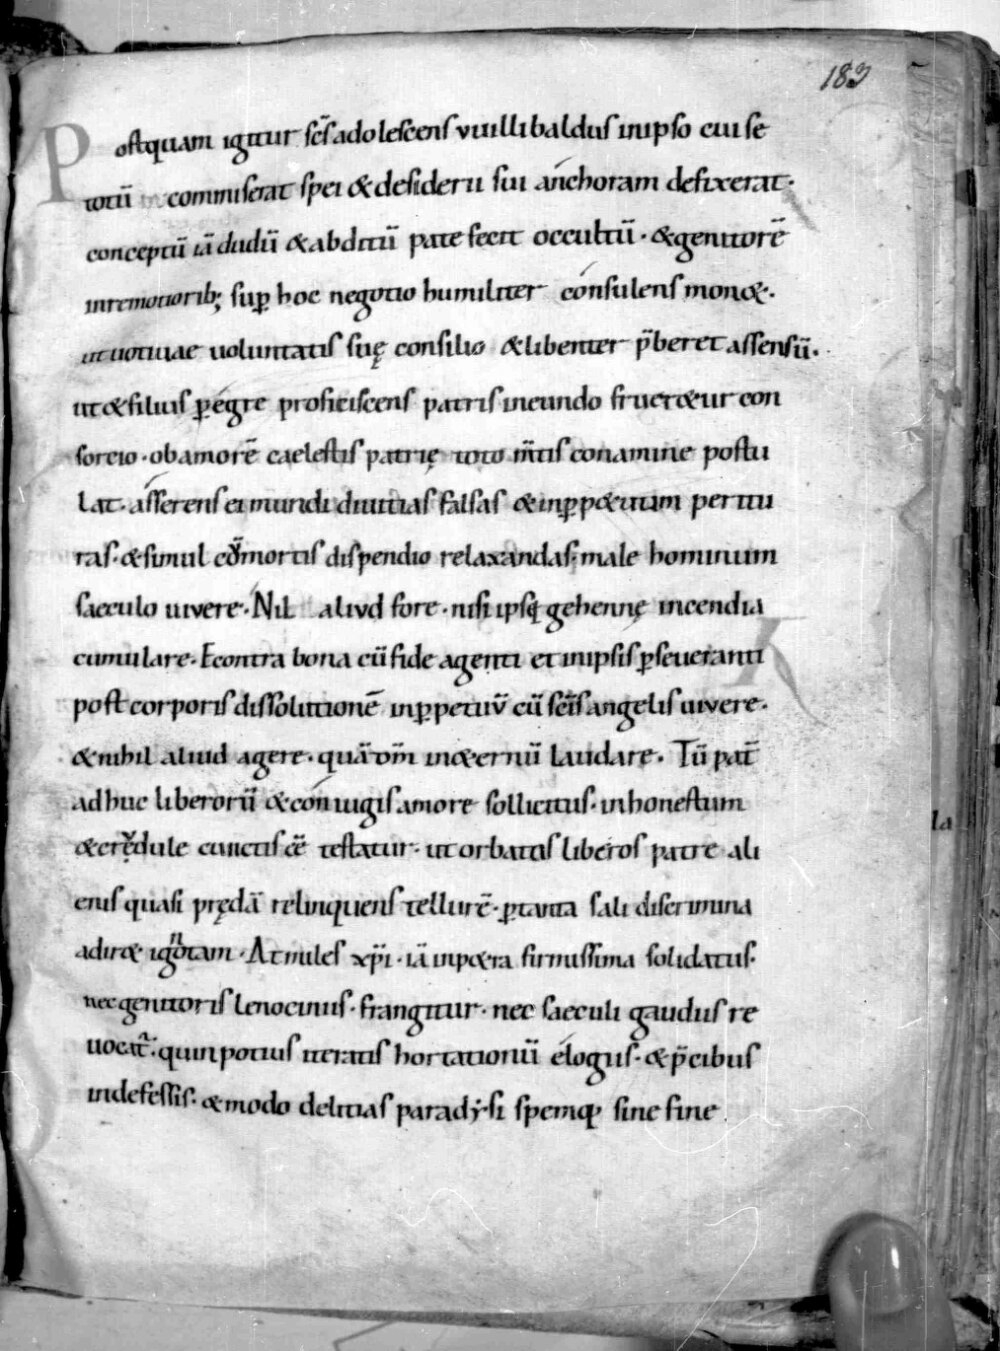 183
Postquam igitur scs̄ adolescens vuillibaldus in ipso cui se
totū commiserat spei & desiderii sui anchoram defixerat·
conceptū iā dudū & abditū patefecit occultū· & genitorē
inremotiorib; sup̱ hoc negotio humiliter consulens mon&·
ut uotiuae uoluntatis suę consilio & libenter p̄beret assensū·
ut & filius p̱egre proficiscens patris ineundo fruer&ur con
sorcio· ob amorē caelestis patrię toto m̄tis conamine postu
lat· asserens ei mundi diuitias falsas & inp̱p&uum peritu
ras· & simul cū mortis dispendio relaxandas; male hominum
saeculo uivere· Nil aliud fore· nisi ipsq̨ gehennę incendia
cumulare· Econtra bona cū fide agenti et in ipsis p̱seueranti
post corporis dissolutionē inp̱petuū cū scīs angelis uivere·
& nihil aliud agere· quā om̄ in&ernū laudare· Tū pat̄
ad huc liberorū & coniugis amore sollicitus· inhonestum
& credule cunctis eē testatur· ut orbatis liberos patre ali
enis quasi prędā relinquens tellurē· p̱ tanta sali discrimina
adir& ignotam· At miles xp̄i· iā in p&ra firmissima solidatus·
nec genitoris lenociniis· frangitur· nec saeculi gaudiis re
uocat̄· quin potius iteratis hortationū elogiis· & p̄cibus
indefessis· & modo delitias paradysi spemq; sine fine
la